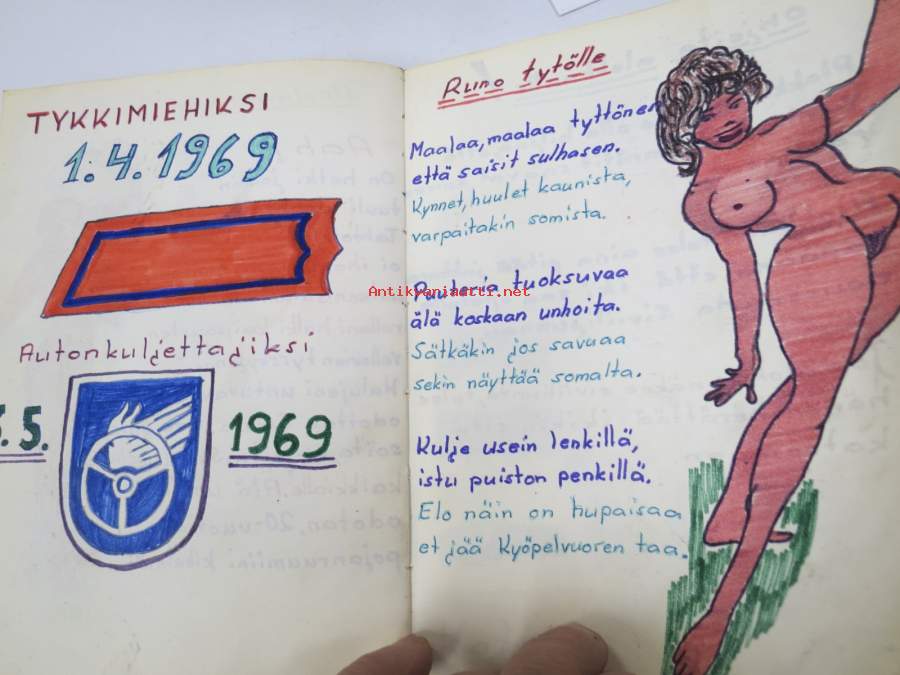 TYKKIMIEHIKSI
1.4.1969
Autonkuljettajiksi.
5.
1969
Runo tytölle
Maalaa, maalaa tyttönen
että saisit sulhasen.
Kynnet, huulet kaunista,
varpaitakin somista.
Puuteria tuoksuvaa
älä koskaan unhoita.
Sätkäkin jos savuaa
sekin näyttää somalta.
Kulje usein lenkillä,
istu puiston penkillä.
Elo näin on hupaisaa
et jää Kyöpelvuoren taa.
Antikvariaatti.net